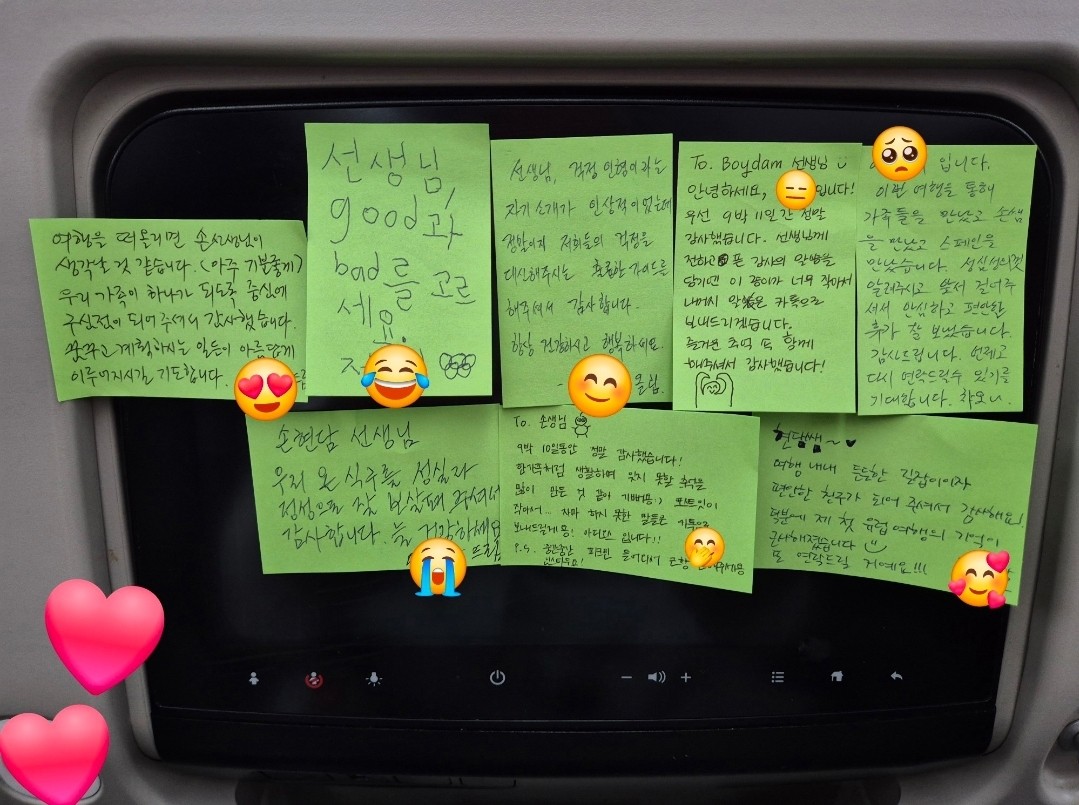 여행을 떠올리면 손선생님이
생각날 것 같습니다. (아주 기분좋게)
우리 가족이 하나가 되도록 중심에
구심점이 되어주셔서 감사했습니다.
꿈꾸고 계획하시는 일들이 아름답게
이루어지시길 기도합니다.
선생님,
good과
bad를 고르
세요
선생님, 걱정 인형이라는
자기소개가 인상적이었는데
정말이지 저희들의 걱정을
대신해주시는 훌륭한 가이드를
해주셔서 감사합니다.
항상 건강하시고 행복하세요.
To. Boydam 선생님
안녕하세요, 입니다!
우선 9박 11일간 정말
감사했습니다. 선생님께
전하고픈 감사의 말씀을
담기엔 이 종이가 너무 작아서
내머시 말씀은 카톡으로
보내드리겠습니다.
즐거운 추억 또 함께
해주셔서 감사했습니다!
입니다.
이번 여행을 통해
가족들을 만났고 손쌤
을 만났고 스페인을
만났습니다. 성심성의껏
알려주시고 앞서 걸어주
셔서 안심하고 편안한
휴가 잘 보냈습니다.
감사드립니다. 언제고
다시 연락드릴수 있기를
기대합니다. 차오~.
손현담 선생님
우리 온 식구를 성실과
정성으로 잘 보살펴 주셔서
감사합니다. 늘 건강하세요
드림
To. 손생님
9박 10일동안 정말 감사했습니다!
한가족처럼 생활하며 잊지 못할 추억을
많이 만든 것 같아 기뻐용:) 포스트잇이
작아서... 차마 하지 못한 말들은 카톡으로
보내드릴게용! 아디오스 입니다!!
P.S. 중간중간
현담쌤~
여행 내내 든든한 길잡이이자
편안한 친구가 되어 주셔서 감사해요!
덕분에 제 첫 유럽여행의 기억이
근사해졌습니다
또 연락드릴 거예요!!!